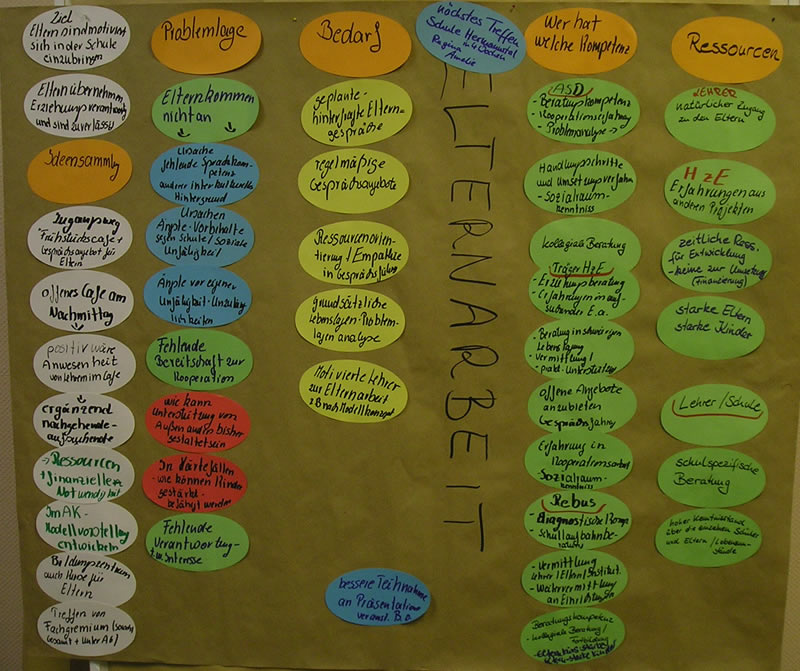 Ziel
Eltern sind motiviert
sich in der Schule
einzubringen
Eltern übernehmen
Erziehungsverantwort
und sind zuverlässig
Ideensammlg
Zugangsweg
"Frühstückscafe +
Gesprächsangebot für
Eltern
offenes Cafe am
Nachmittag
positiv wäre
Anwesenheit
von Lehrern im Cafe
ergänzend
nachgehende-
aufsuchende
→ Ressourcen
+ finanzielle
Notwendigkeit
Im AK-
Modellvorstellung
entwickeln
Bildungszentrum
auch Kurse für
Eltern
Treffen von
Fachgremium
gesamt + Unter AG)
Problemlage
Eltern kommen
nicht an
Ursache
fehlende Sprachkom-
petenz
anderer interkultureller
Hintergrund
Ursachen
Ängste-Vorbehalte
gegen Schule/Soziale
Unfähigkeit
Ängste vor eigener
Unfähigkeit-Unzuläng-
lichkeiten
Fehlende
Bereitschaft zur
Kooperation
wie kann
Unterstützung von
Außen anders bisher
gestaltet sein
In Härtefällen
- wie können Kinder
gestärkt-
befähigt werden
Fehlende
Verantwortung-
Interesse
Bedarf
geplante-
hinterfragte Eltern-
gespräche
regelmäßige
Gesprächsangebote
Ressourcenorien-
tierung / Empathie
in Gesprächsführung
grundsätzliche
Lebenslagen-Problem-
lagen analyse
Motivierte Lehrer
zur Elternarbeit
z.B nach Modellkonzept
bessere Teilnahme
an Präsentations
veranst. B.
nächstes Treffen
Schule Hermannstal
in 4 Wochen
Regina
Amelie
ELTERNARBEIT
Wer hat
welche Kompetenz
ASD
- Beratungskompetenz
- Kooperationserfahrung
- Problemanalyse →
Handlungsschritte
und Umsetzungsverfahren
- Sozialraum-
kenntniss
kollegiale Beratung
Träger HzE
- Erziehungsberatung
- Erfahrungen in auf-
suchender E.a.
- Beratung in schwierigen
Lebenslagen
- Vermittlung /
prakt. Unterstützung
offene Angebote
anzubieten
Gesprächsführung
Erfahrung in
Kooperationsarbeit
- Sozialraum-
kenntniss
Rebus
- diagnostische Komp
- Schullaufbahnbe-
ratung
- Vermittlung
Lehrer / Eltern / Institut.
- Weitervermittlung
an Einrichtungen
Beratungskompetenz
- kollegiale Beratung /
Fortbildung
Ressourcen
LEHRER
natürlicher Zugang
zu den Eltern
HzE
Erfahrungen aus
anderen Projekten
zeitliche Ress.
für Entwicklung
- keine zur Umsetzung
(Finanzierung)
starke Eltern
starke Kinder
Lehrer / Schule
schulspezifische
Beratung
hoher Kenntnisstand
über die einzelnen Schüler
und Eltern / Lebensum-
stände